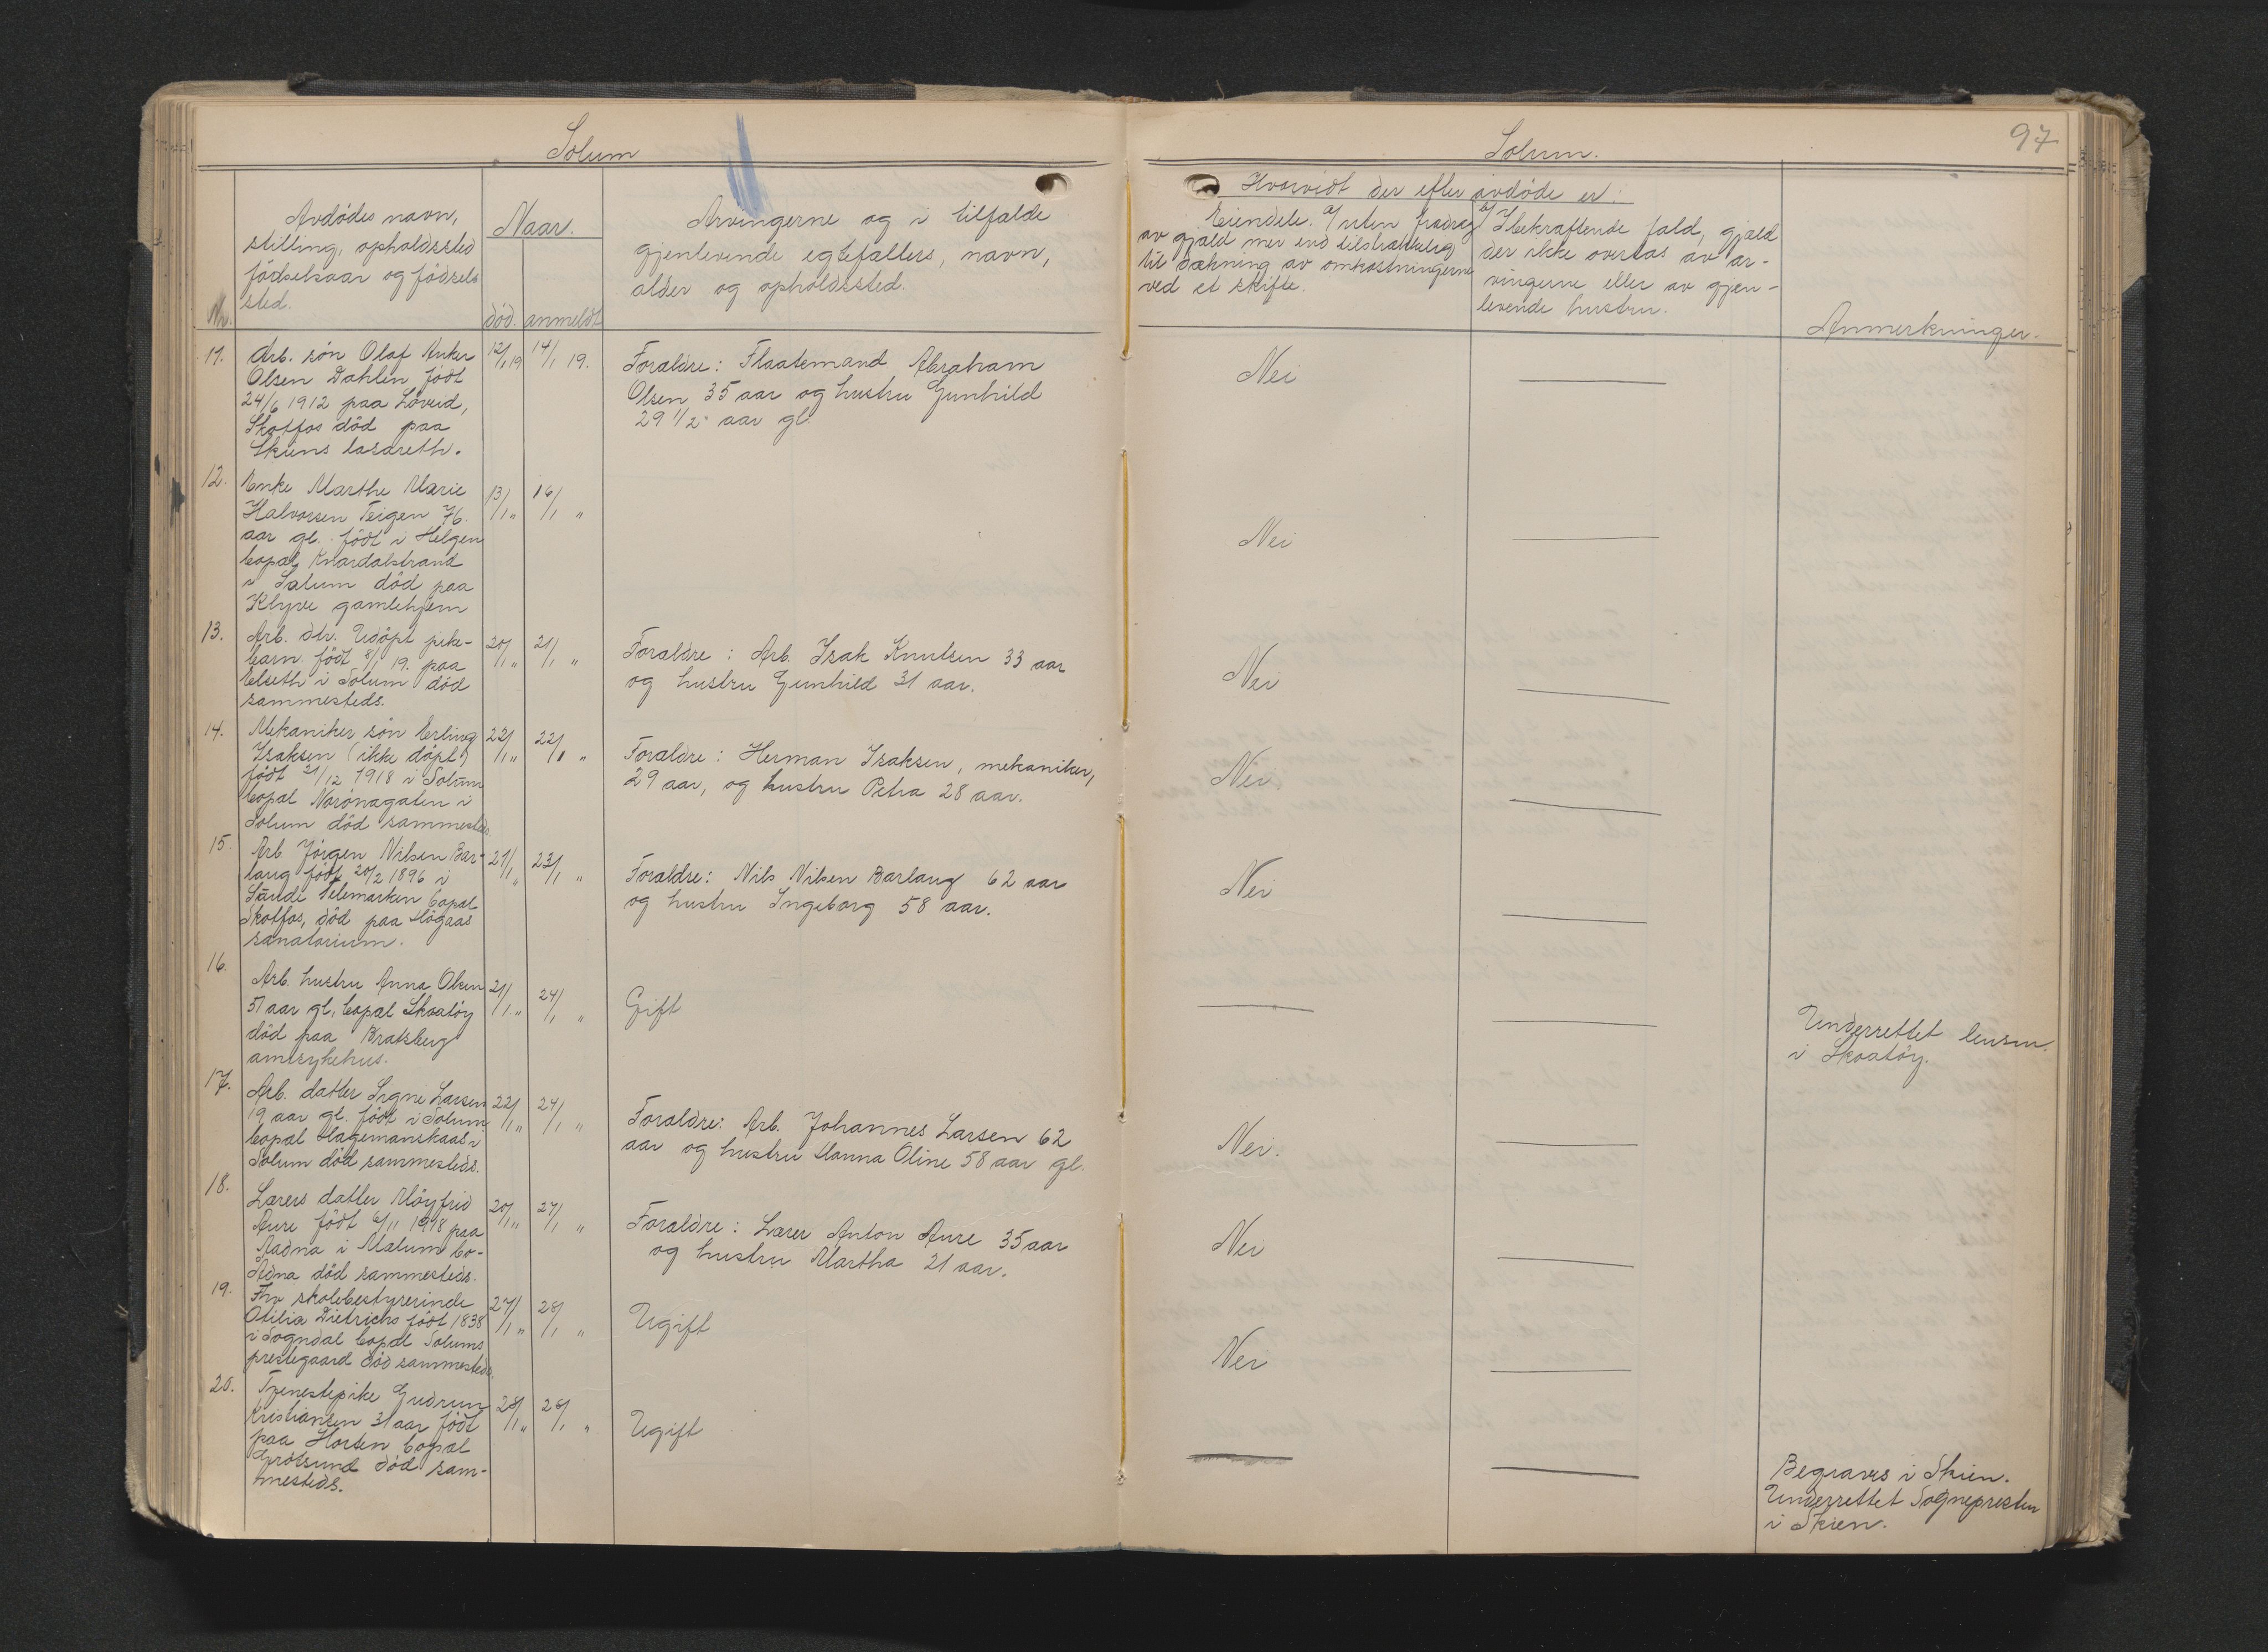 Solum
Avdödes navn,
stilling, opholdssted
födselsaar og födsels
sted.
Nr.
Naar.
död. anmeldt
Arvingerne og i tilfælde
gjenlevende egtefællers, navn,
alder og opholdssted.
11.
Arb. sön Olaf Anker
Olsen Dahlin født
24/6 1912 paa Löveid,
Skotfos död paa
Skiens lasareth.
12/1 19
14/1 19.
Foraldre: Flaatemand Abraham
Olsen 35 aar og hustru Gunhild
29 1/2 aar gl.
12.
Enke Marthe Marie
Halvorsen Teigen 76
aar gl. født i Helgen
bopæl Knardalstrand
i Solum död paa
Klyve gamlehjem
13/1 "
16/1 "
13.
Arb. dtr. Udöpt pike-
barn født 8/1 19. paa
Elseth i Solum död
sammesteds.
20/1 "
21/1 "
Foraldre: Arb. Isak Knutsen 33 aar
og hustru Gunhild 31 aar.
14.
Mekaniker sön Erling
Isaksen (ikke döpt)
født 21/12 1918 i Solum
bopæl Norönagaten i
Solum död sammesteds
22/1 "
22/1 "
Foraldre: Herman Isaksen, mekaniker,
29 aar, og hustru Petra 28 aar.
15.
Arb Jörgen Nilsen Bar-
laug født 20/2 1896 i
Saude Telemarken bopæl
Skotfos, död paa Högaas
sanatorium.
21/1 "
23/1 "
Foraldre: Nils Nilsen Barlaug 62 aar
og hustru Ingeborg 58 aar.
16.
Arb. hustru Anna Olsen
51 aar gl, bopæl Skaatöy
död paa Bratsberg
amtsykehus.
21/1 "
24/1 "
Gift
17.
Arb. datter Signe Larsen
19 aar gl. født i Solum
bopæl Hagemanskaas i
Solum död sammesteds.
22/1 "
24/1 "
Foraldre: Arb. Johannes Larsen 62
aar og hustru Hanna Oline 58 aar gl.
18.
Lærers datter Möyfrid
Aure født 6/11 1918 paa
Aadna i Mælum bo-
Adna död sammesteds.
20/1 "
27/1 "
Foraldre: Lærer Anton Aure 35 aar
og hustru Martha 21 aar.
19.
Frv skolebestyrerinde
Otilia Dietrichs født 1838
i Sogndal bopæl Solums
prestegaard död sammesteds.
27/1 "
28/1 "
Ugift
20.
Tjenestepike Gudrun
Kristiansen 31 aar født
paa Horten bopæl
Grötsund död sam-
mesteds.
28/1 "
28/1 "
Ugift
Solum.
97
Hvorvidt der efter avdöde er:
Eiendele. a/ uten fradrag
av gjæld mer end tilstrækkelig
til dækning av omkostningerne
ved et skifte.
b/ I bekræftende fald, gjæld
der ikke overtas av ar-
vingerne eller av gjen-
levende hustru.
Anmerkninger.
Nei
Nei
Nei
Nei
Nei
Underrettet lensm.
i Skaatöy.
Nei.
Nei
Nei
Begraves i Skien.
Underrettet Sognepresten
i Skien.